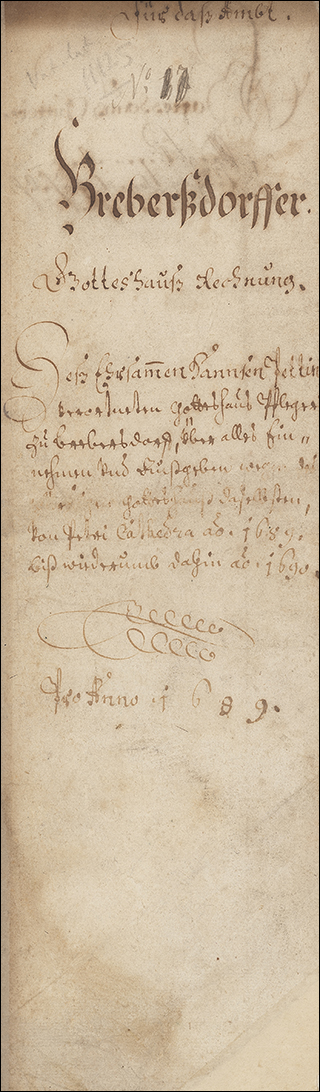 Für daß Ambt.
No 17
Breberßdorffer.
Gotteshauß Rechnung.
Deß Ehrsam̄en Hannsen
verordneten Gotteshauß Pfleger
zu Brebersdorff, über alles Ein=
nehmen und Außgeben
Gotteshauß daselbsten,
von Petri Cathedra aõ. 1689.
biß wiederumb dahin aõ. 1690.
Pro Anno 1689.